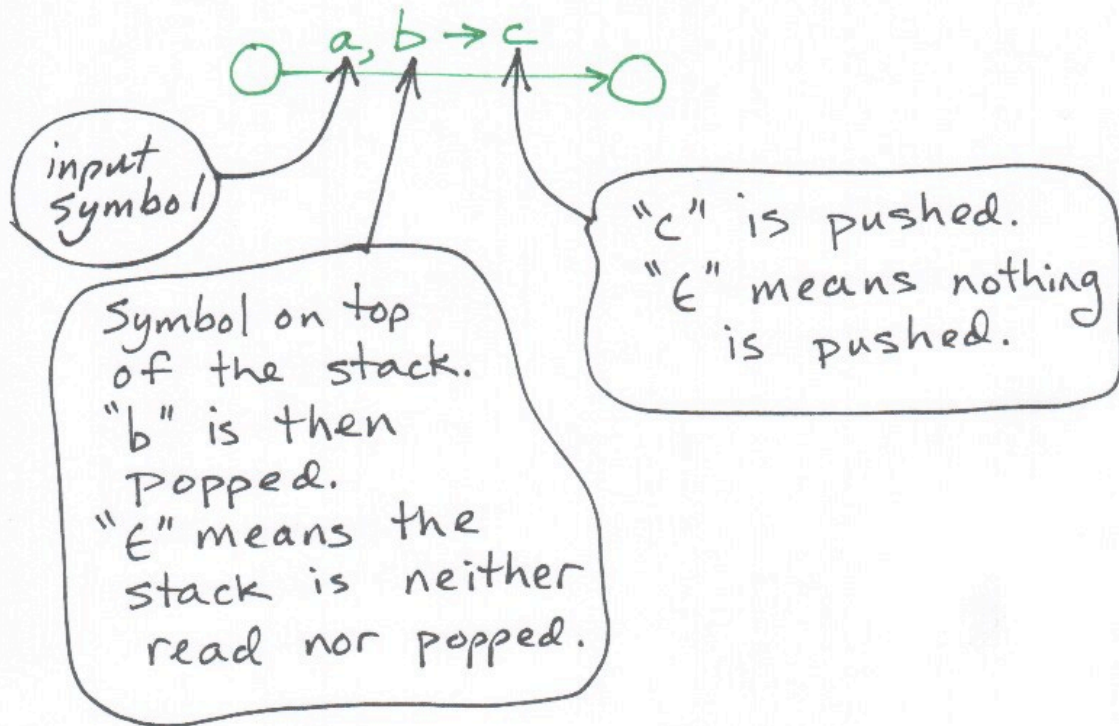 a, b → c
input
symbol
Symbol on top
of the stack.
"b" is then
popped.
"ϵ" means the
stack is neither
read nor popped.
"c" is pushed.
"ϵ" means nothing
is pushed.